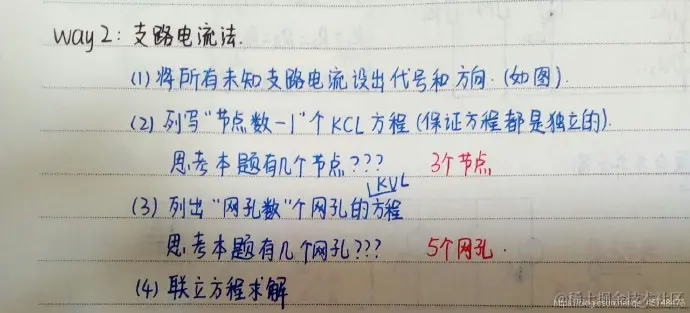 way 2: 支路电流法.
(1) 将所有未知支路电流设出代号和方向.(如图).
(2) 列写"节点数-1"个 KCL 方程 (保证方程都是独立的).
思考本题有几个节点??? 3个节点
KVL
(3) 列出"网孔数"个网孔的方程
思考本题有几个网孔??? 5个网孔.
(4) 联立方程求解
@稀土掘金技术社区